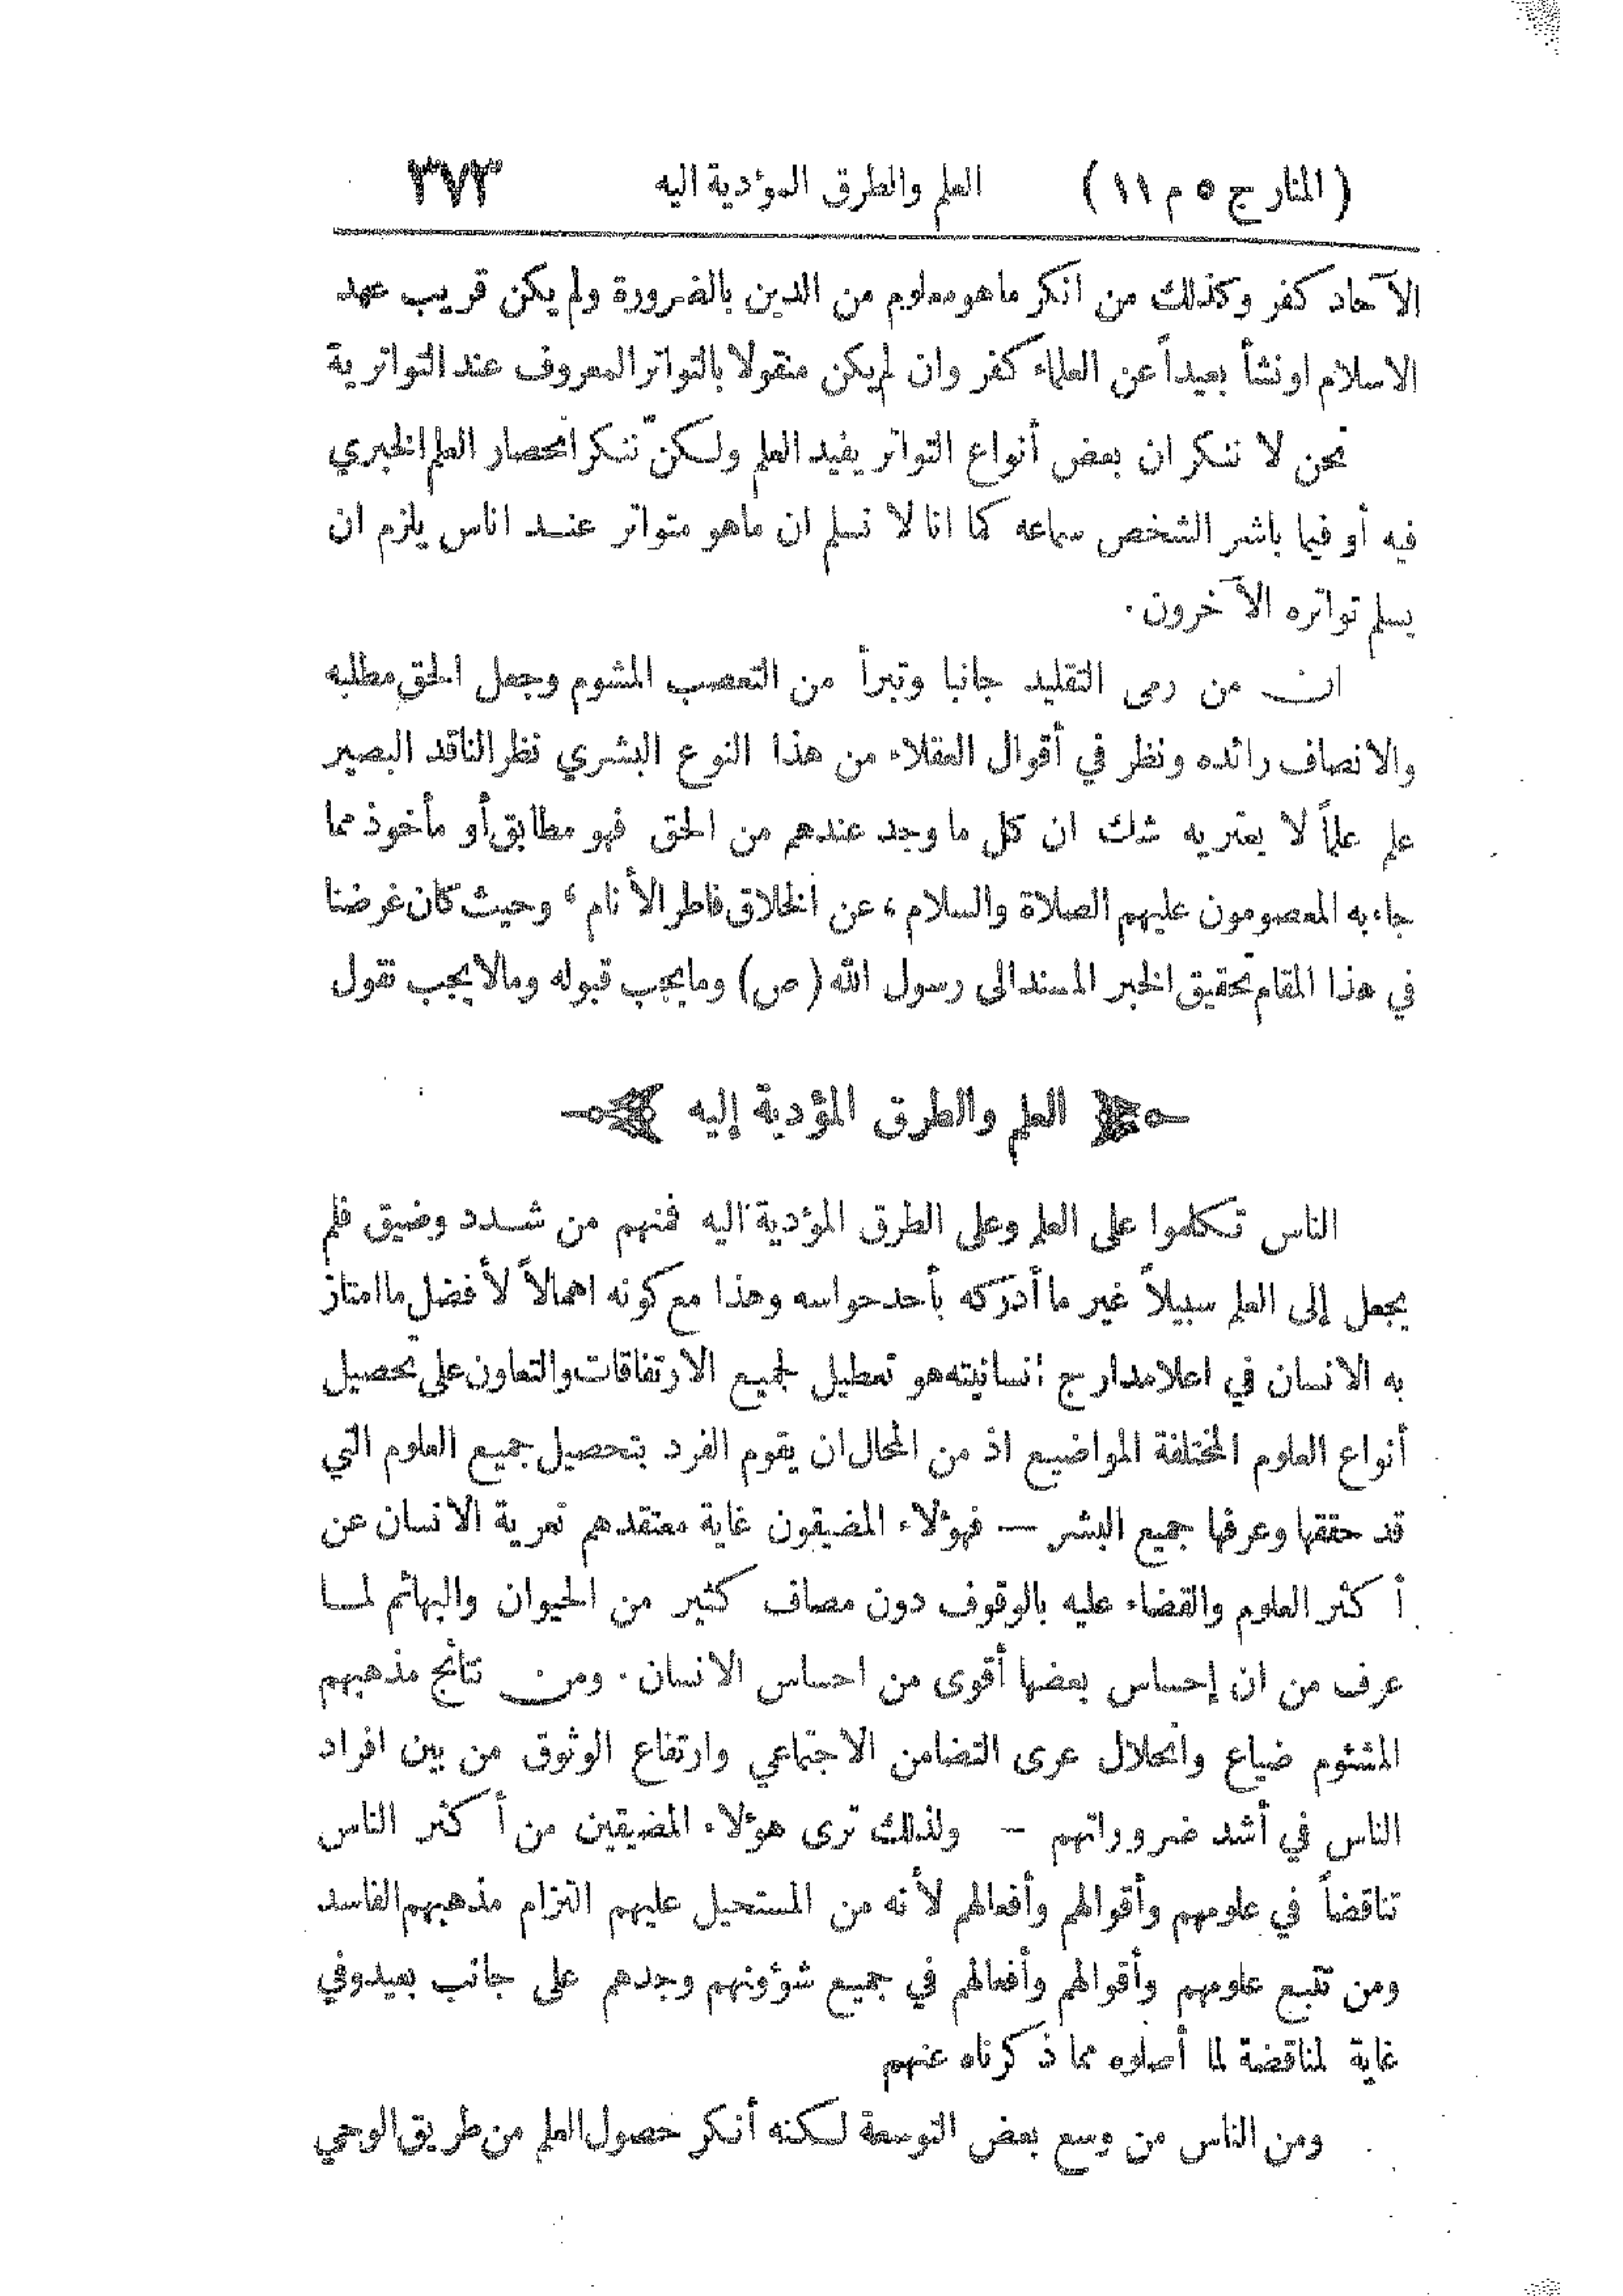 (المنار ج ٥ م ١١) العلم والطرق المؤدية اليه ٣٧٣
الآحاد كفر وكذلك من انكر ماهو معلوم من الدين بالضرورة ولم يكن قريب عهد
الاسلام او نشأ بعيداً عن العلماء كفر وان لم يكن منقولا بالتواتر المعروف عند التواترية
نحن لا ننكر ان بعض أنواع التواتر يفيد العلم ولكن ننكر انحصار العلم الخبري
فيه أو فيما باشر الشخص سماعه كما انا لا نسلم ان ماهو متواتر عند اناس يلزم ان
يسلم تواتره الآخرون .
ان من رمى التقليد جانبا وتبرأ من التعصب المشوم وجعل الحق مطلبه
والانصاف رائده ونظر في أقوال العقلاء من هذا النوع البشري نظر الناقد البصير
علم علماً لا يعتريه شك ان كل ما وجد عندهم من الحق فهو مطابق أو مأخوذ مما
جاء به المعصومون عليهم الصلاة والسلام ، عن الخلاق فاطر الأنام ، وحيث كان غرضنا
في هذا المقام تحقيق الخبر المسند الى رسول الله (ص) وما يجب قبوله وما لا يجب نقول
العلم والطرق المؤدية إليه
الناس تكلموا على العلم وعلى الطرق المؤدية اليه فمنهم من شدد وضيق فلم
يجعل إلى العلم سبيلاً غير ما أدركه بأحد حواسه وهذا مع كونه اهمالاً لأفضل ما امتاز
به الانسان في اعلا مدارج انسانيته هو تعطيل لجميع الارتفاقات والتعاون على تحصيل
أنواع العلوم المختلفة المواضيع اذ من المحال ان يقوم الفرد بتحصيل جميع العلوم التي
قد حققها وعرفها جميع البشر — فهؤلاء المضيقون غاية معتقدهم تعرية الانسان عن
أكثر العلوم والقضاء عليه بالوقوف دون مصاف كثير من الحيوان والبهائم لما
عرف من ان إحساس بعضها أقوى من احساس الانسان . ومن نتائج مذهبهم
المشئوم ضياع وانحلال عرى التضامن الاجتماعي وارتفاع الوثوق من بين افراد
الناس في أشد ضروراتهم — ولذلك ترى هؤلاء المضيقين من أكثر الناس
تناقضاً في علومهم وأقوالهم وأفعالهم لأنه من المستحيل عليهم التزام مذهبهم الفاسد
ومن تتبع علومهم وأقوالهم وأفعالهم في جميع شؤونهم وجدهم على جانب بعيد وفي
غاية لمناقضة لما أصلوه مما ذكرناه عنهم
ومن الناس من وسع بعض التوسعة لكنه أنكر حصول العلم من طريق الوحي